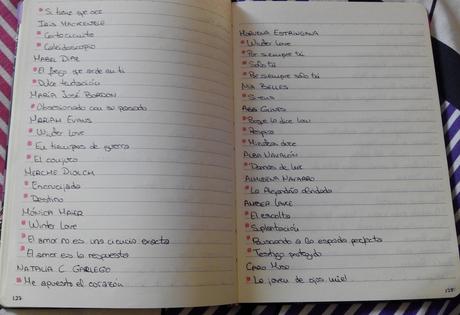 Si tiene que ser
IRIS MACKENZIE
Cortocircuito
Caleidoscopio
MABEL DÍAZ
El fuego que arde en ti
Dulce tentación
MARÍA JOSÉ BORDON
Obsesionado con su pasado
MARIAH EVANS
Winter Love
En tiempos de guerra
El conjuro
MERCHE DIOLCH
Encrucijada
Destino
MÓNICA MAIER
Winter Love
El amor no es una ciencia exacta
El amor es la respuesta
NATALIA C. GALLEGO
Me apuesto el corazón
127
MORUENA ESTRÍNGANA
Winter Love
Por siempre tú
Sólo tú
Por siempre sólo tú
MIA BELLES
Si eres
ABBI GLINES
Porque lo dice
Respira
Mientras dure
ALBA NAVALÓN
Dramas de
ALMUDENA NAVARRO
La Alejandría olvidada
AMBER LAKE
El escolta
Suplantación
Buscando a la esposa perfecta
Testigo protegido
CARO MUSSO
La joven de ojos miel
128